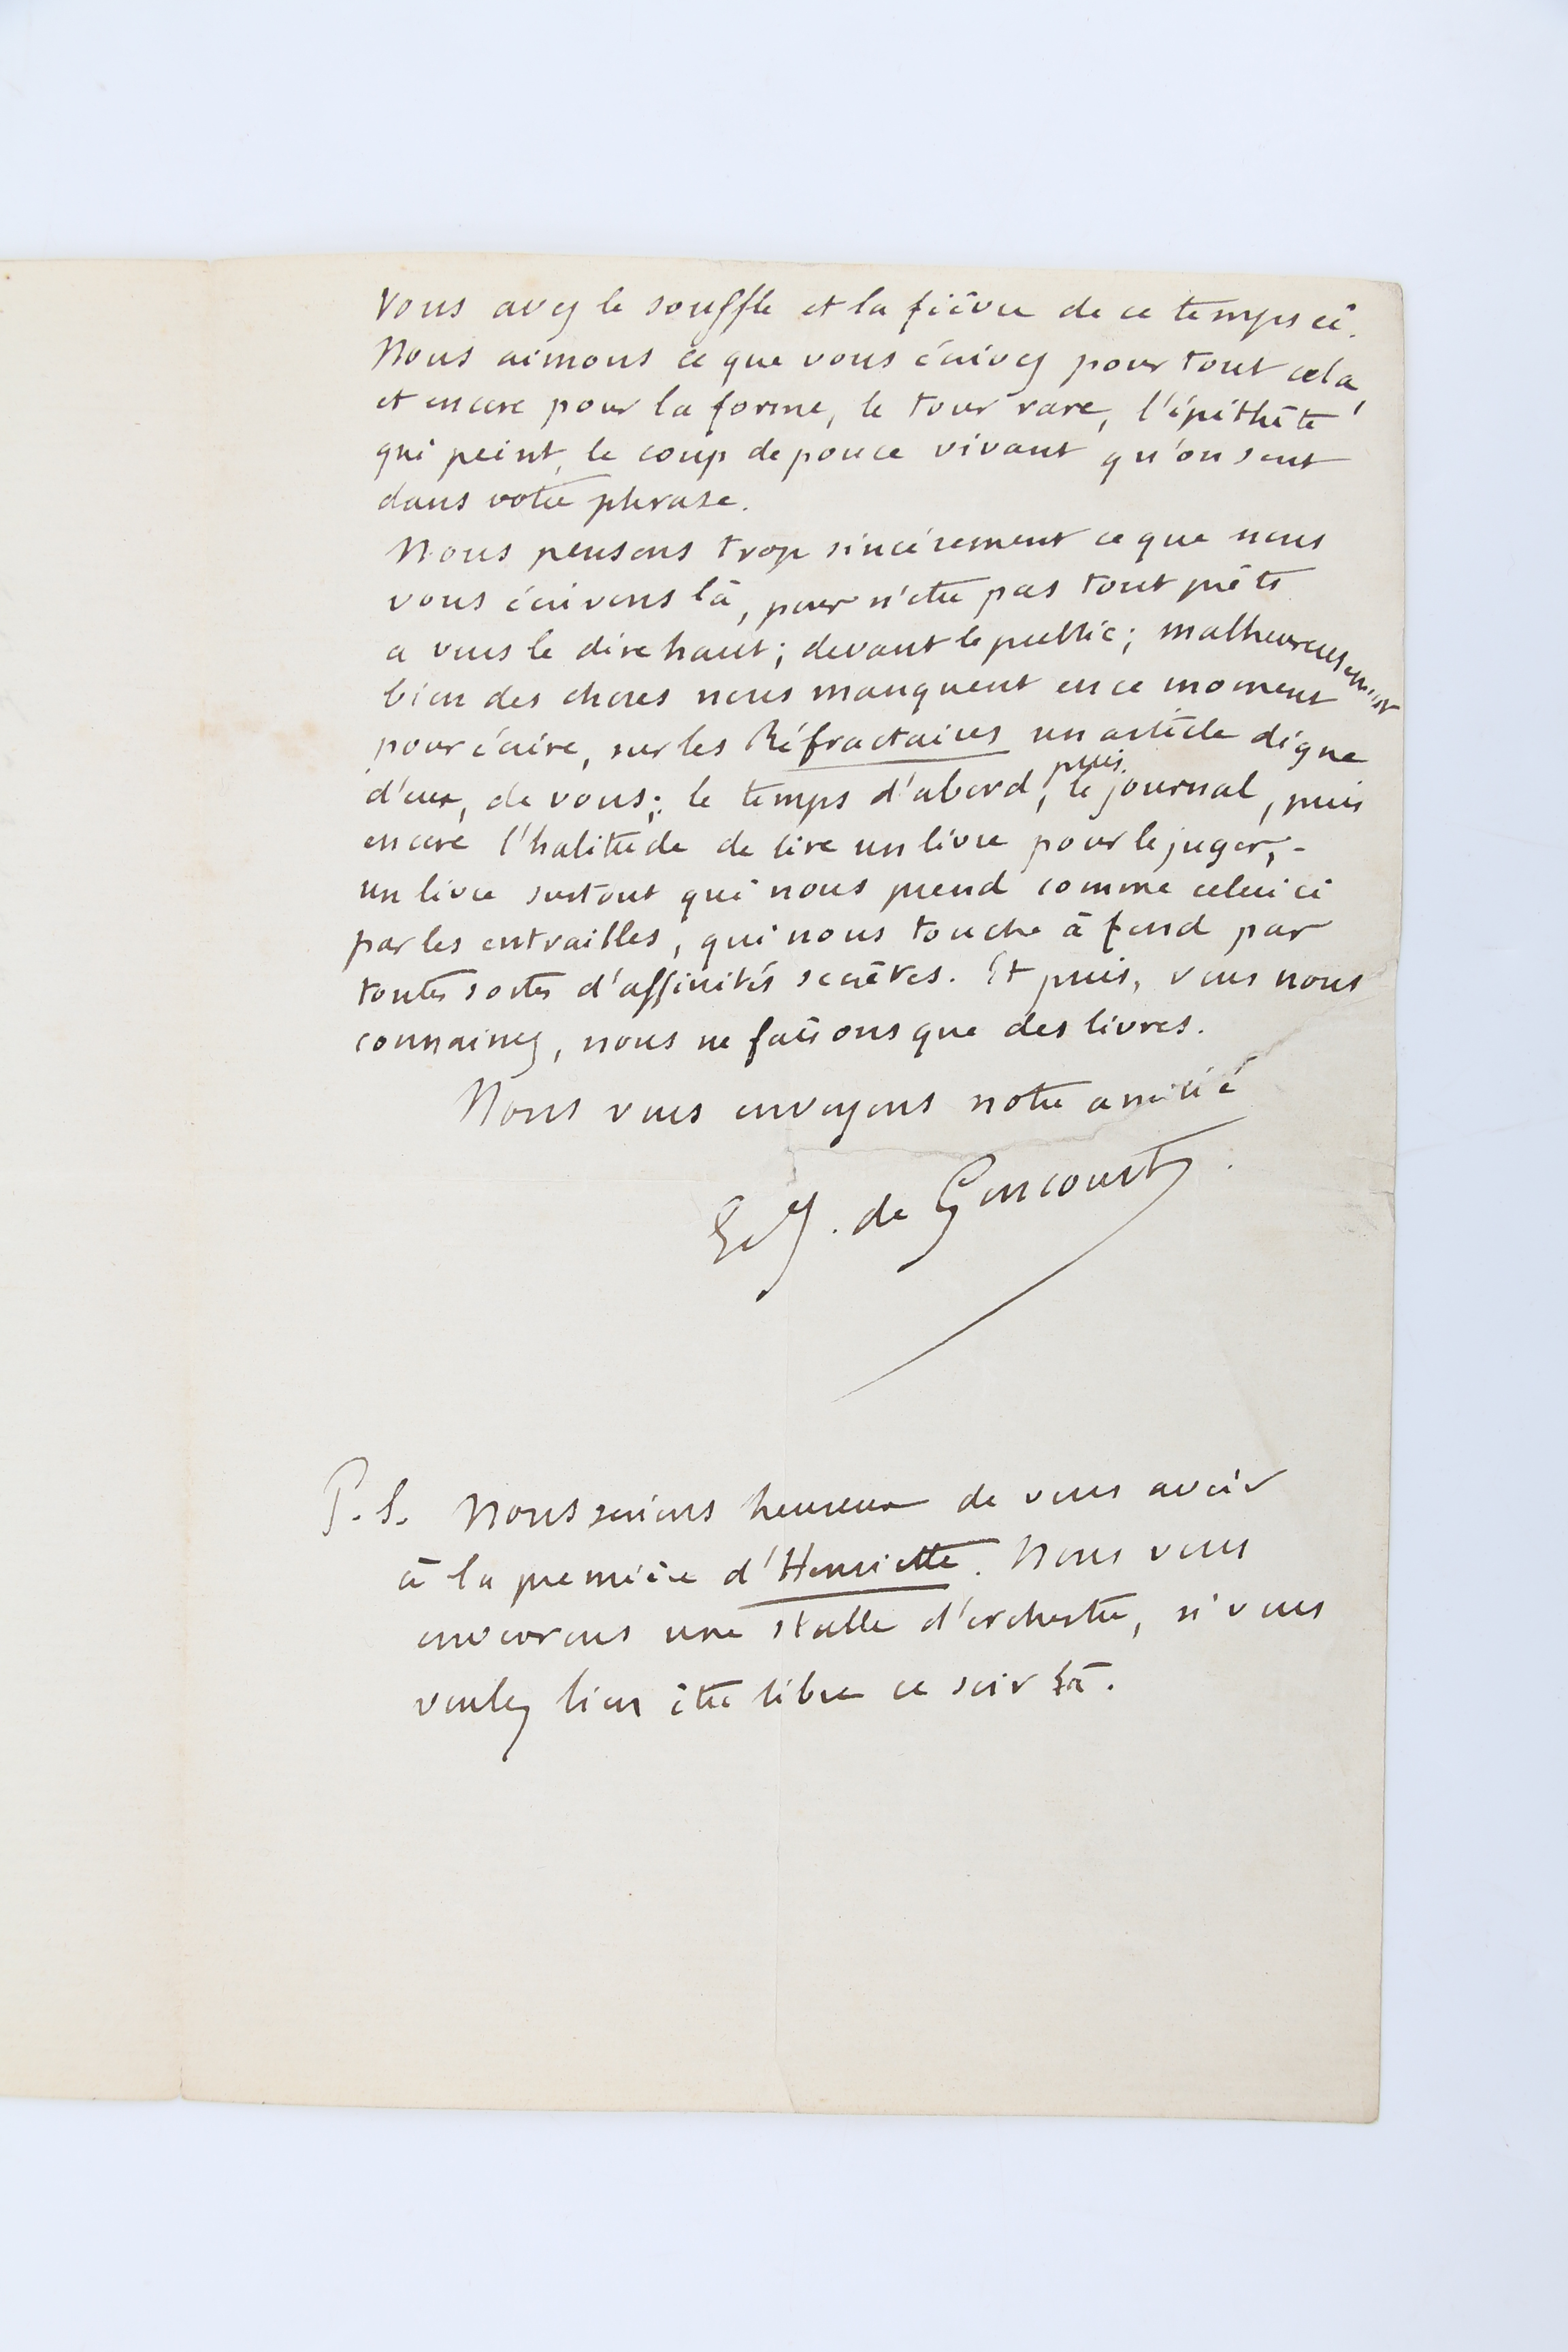 Vous avez le souffle et la fièvre de ce temps ci.
Nous aimons ce que vous écrivez pour tout cela,
et encore pour la forme, le tour rare, l'épithète
qui peint, le coup de pouce vivant qu'on sent
dans votre phrase.
Nous pensons trop sincèrement ce que nous
vous écrivons là, pour n'être pas tout prêts
a vous le dire haut; devant le public; malheureusement
bien des choses nous manquent en ce moment
pour écrire, sur les Réfractaires un article digne
d'eux, de vous; le temps d'abord, puis le journal, puis
encore l'habitude de lire un livre pour le juger, -
un livre surtout qui nous prend comme celui ci
par les entrailles, qui nous touche à fond par
toutes sortes d'affinités secrètes. Et puis, vous nous
connaissez, nous ne faisons que des livres.
Nous vous envoyons notre amitié
E et J. de Goncourt.
P.S. Nous serions heureux de vous avoir
à la première d'Henriette. Nous vous
enverrons une stalle d'orchestre, si vous
voulez bien être libre ce soir là.